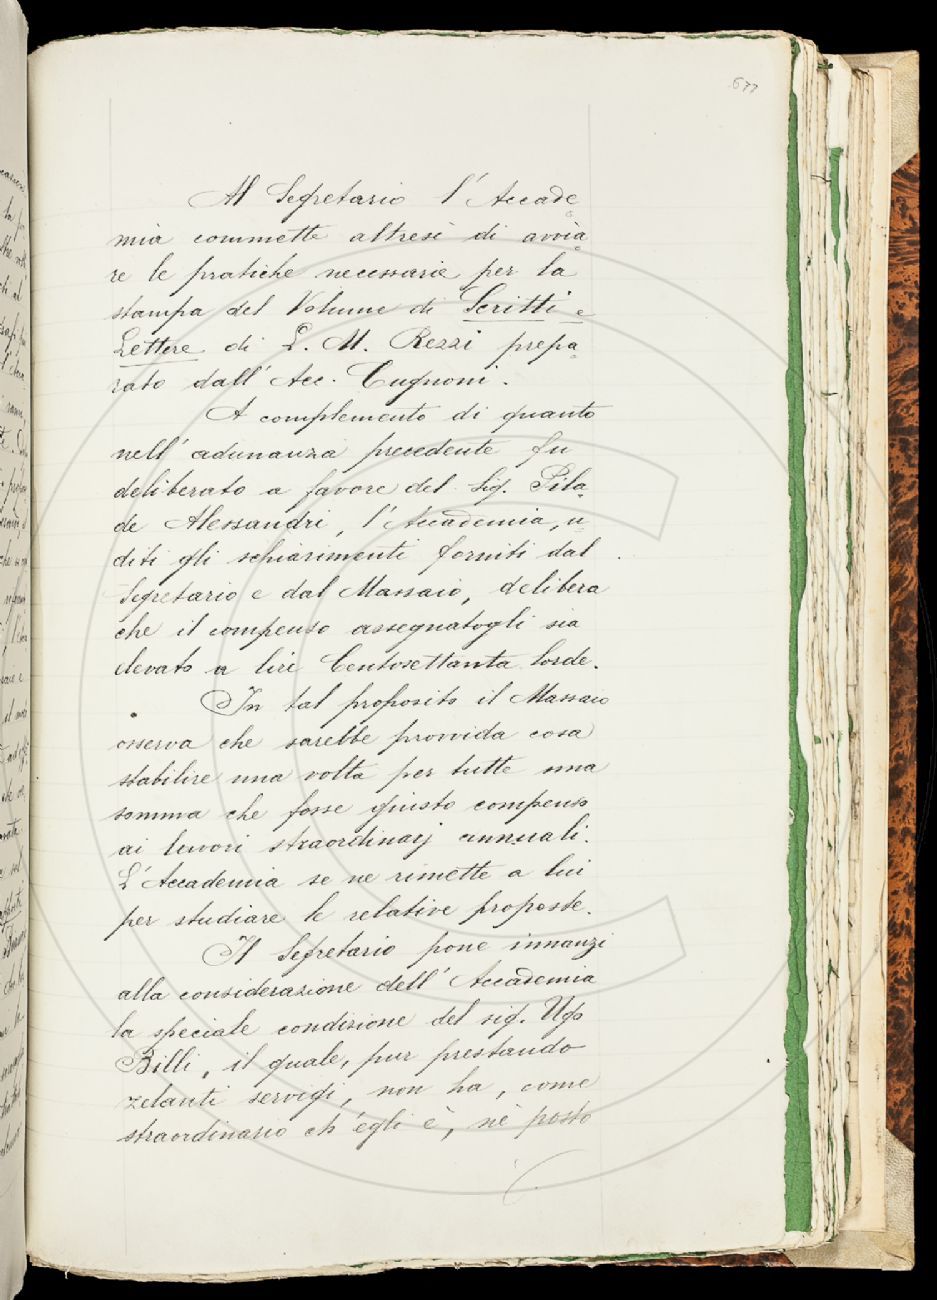 677
Al Segretario l'Accade-
mia commette altresì di avvia-
re le pratiche necessarie per la
stampa del Volume di Scritti e
Lettere di L. M. Rezzi prepa-
rato dall'Acc. Cugnoni.
A complemento di quanto
nell'adunanza precedente fu
deliberato a favore del Sig. Pila-
de Alessandri, l'Accademia, u-
diti gli schiarimenti forniti dal
Segretario e dal Massaio, delibera
che il compenso assegnatogli sia
elevato a lire Centosettanta lorde.
In tal proposito il Massaio
osserva che sarebbe provvida cosa
stabilire una volta per tutte una
somma che fosse giusto compenso
ai lavori straordinarj annuali.
L'Accademia se ne rimette a lui
per studiare le relative proposte.
Il Segretario pone innanzi
alla considerazione dell'Accademia
la speciale condizione del sig. Ugo
Billi, il quale, pur prestando
zelanti servigi, non ha, come
straordinario ch'egli è, nè posto